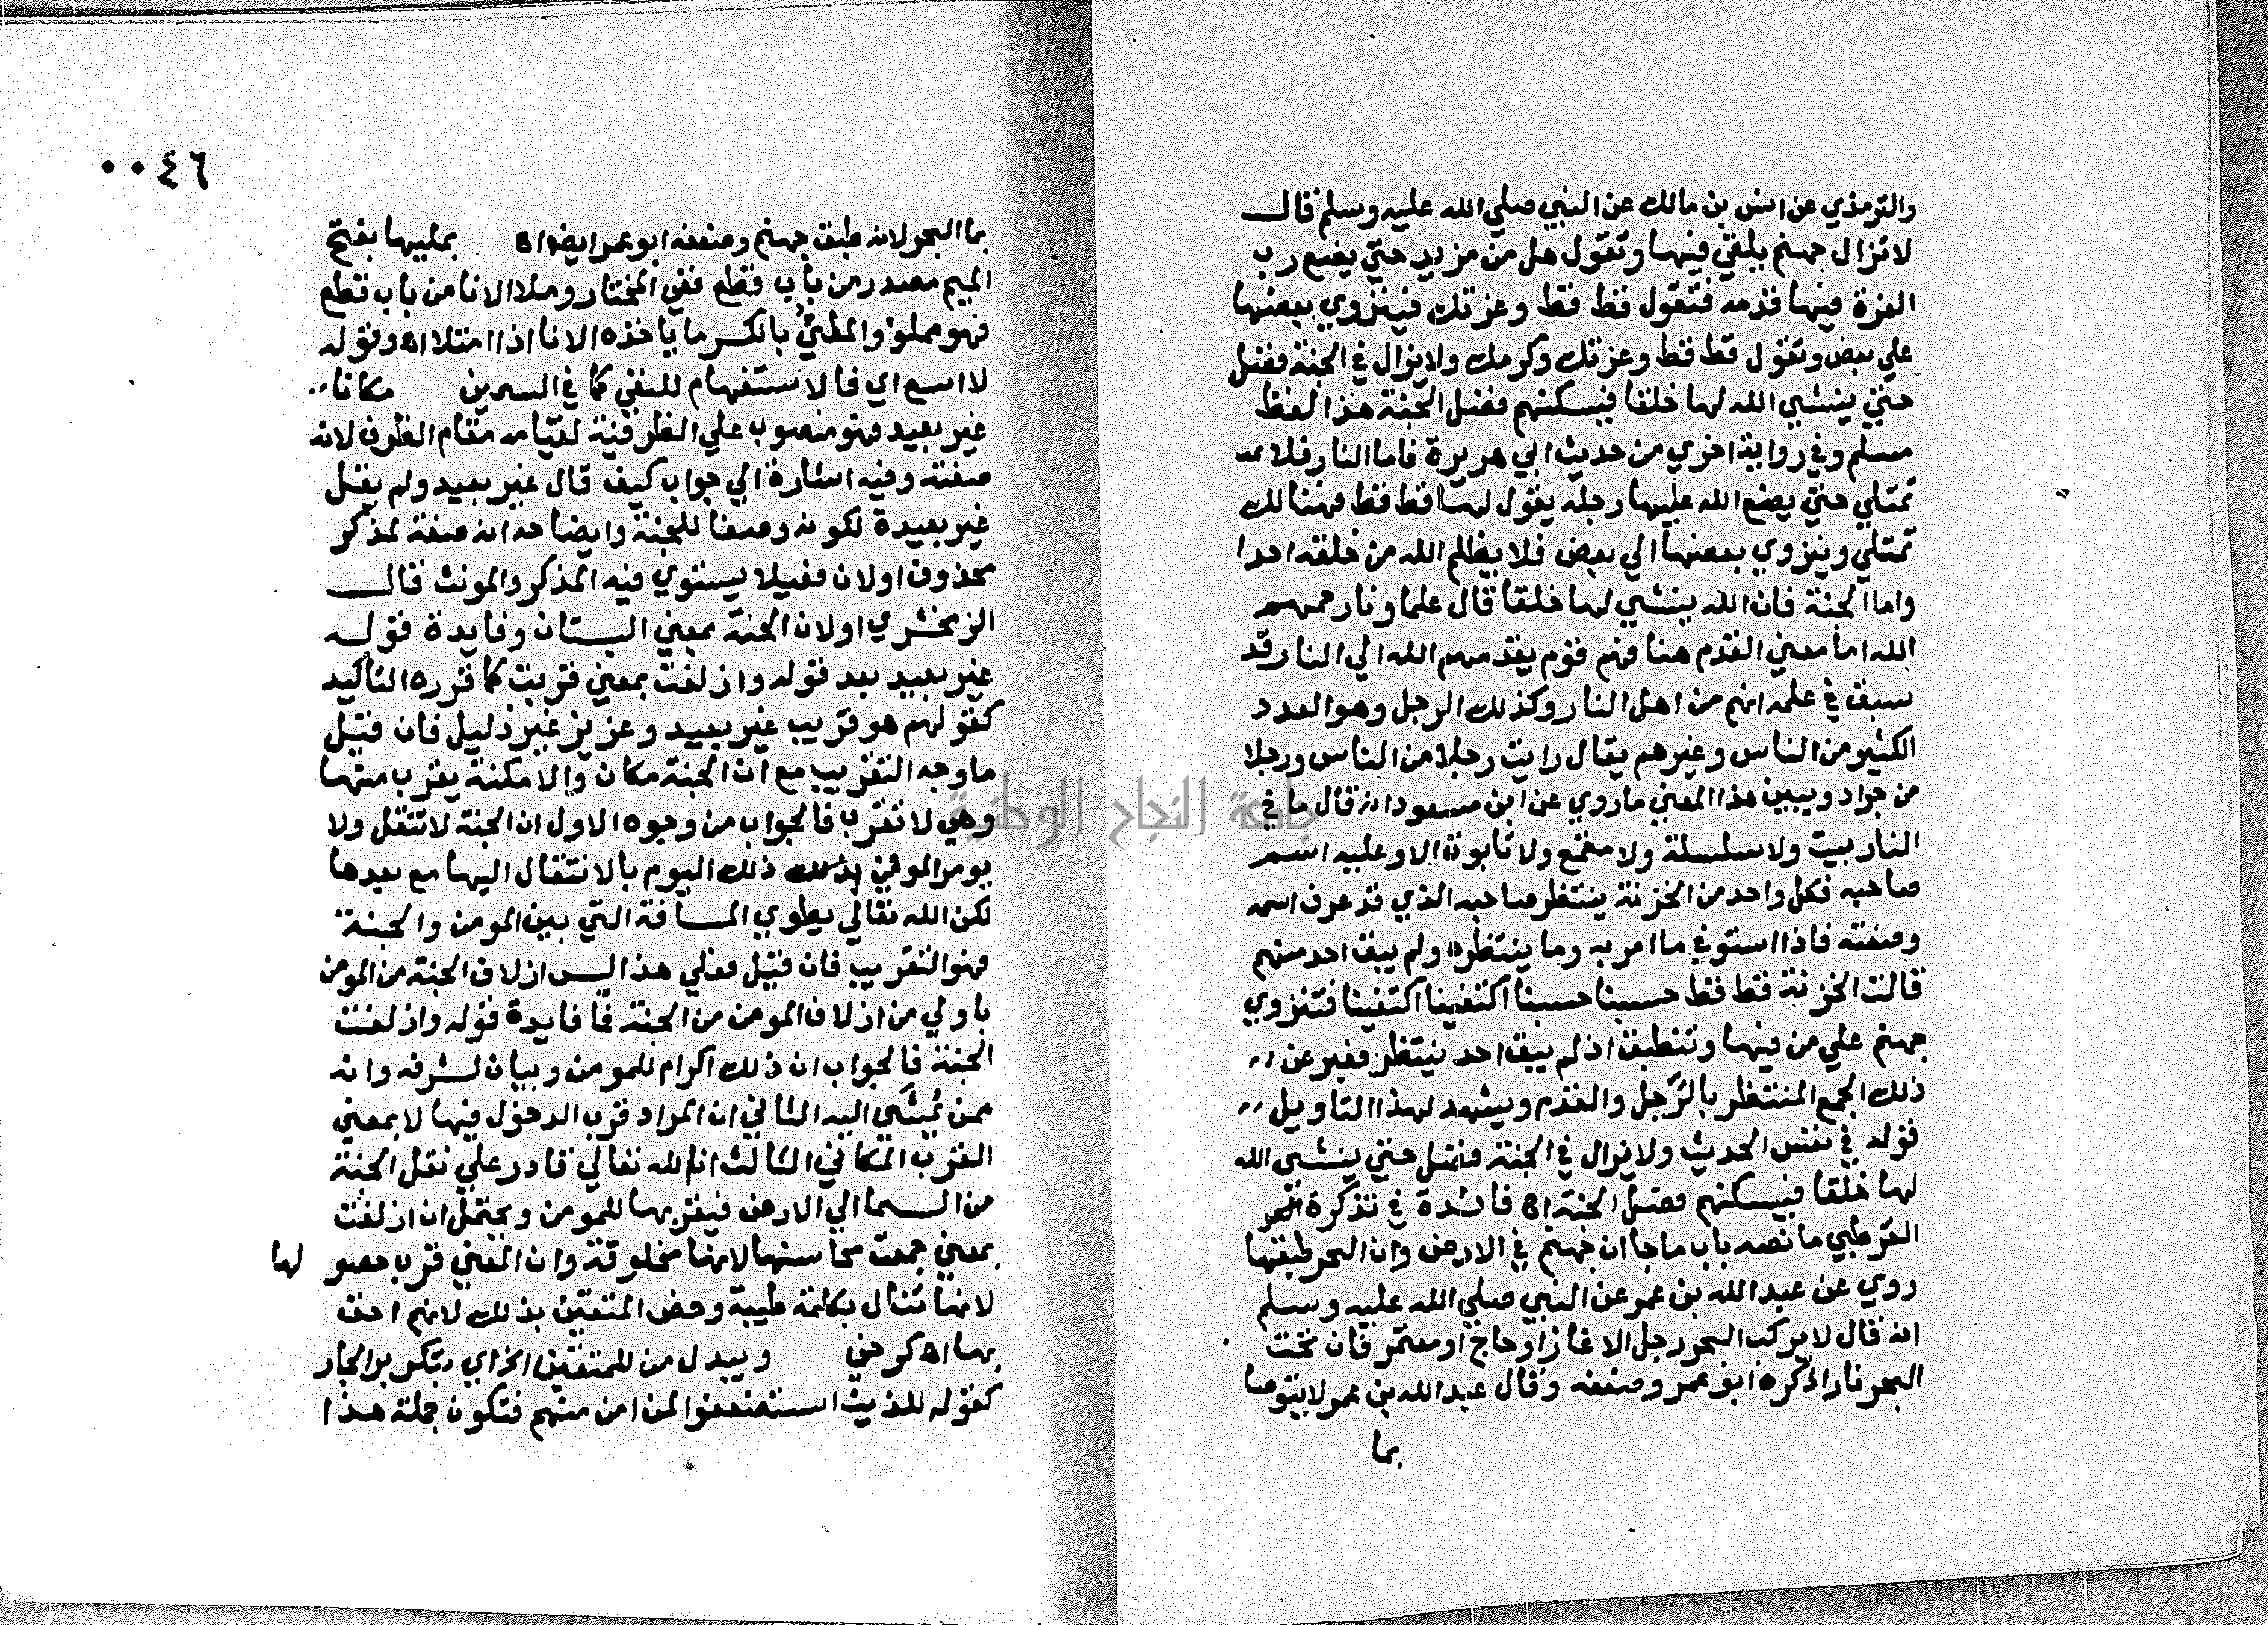 والترمذي عن انس بن مالك عن النبي صلي الله عليه وسلم قال
لا تزال جهنم يلقي فيها وتقول هل من مزيد حتي يضع رب
العزة فيها قدمه فتقول قط قط وعزتك فينزوي بعضها
علي بعض وتقول قط قط وعزتك وكرمك ولا يزال في الجنة فضل
حتي ينشي الله لها خلقا فيسكنهم فضل الجنة هذا لفظ
مسلم وفي رواية اخري من حديث ابي هريرة فاما النار فلا
تمتلي حتي يضع الله عليها رجله يقول لها قط قط فهنالك
تمتلي وينزوي بعضها الي بعض فلا يظلم الله من خلقه احدا
واما الجنة فان الله ينشي لها خلقا قال علماونا رحمهم
الله اما معني القدم هنا فهم قوم يقدمهم الله الي النار قد
سبق في علمه انهم من اهل النار وكذلك الرجل وهو العدد
الكثير من الناس وغيرهم يقال رايت رجلا من الناس ورجلا
من جراد ويبين هذا المعني ما روي عن ابن مسعود انه قال ما في
النار بيت ولا سلسلة ولا مقمع ولا تابوت الا وعليه اسم
صاحبه فكل واحد من الخزنة ينتظر صاحبه الذي قد عرف اسمه
وصفته فاذا استوفي ما امر به وما ينتظره ولم يبق احد منهم
قالت الخزنة قط قط حسبنا حسبنا اكتفينا اكتفينا فتنزوي
جهنم علي من فيها وتنطبق اذ لم يبق احد ينتظر فعبر عن
ذلك الجمع المنتظر بالرجل والقدم ويشهد لهذا التاويل
قوله في نفس الحديث ولا يزال في الجنة فضل حتي ينشي الله
لها خلقا فيسكنهم فضل الجنة اه فائدة في تذكرة
القرطبي ما نصه باب ما جا ان جهنم في الارض وان البحر طبقها
روي عن عبد الله بن عمر عن النبي صلي الله عليه وسلم
انه قال لا يركب البحر رجل الا غاز او حاج او معتمر فان تحت
البحر نارا ذكره ابو عمر وضعفه وقال عبد الله بن عمر لا يتوضا
بما
٠٠٤٦
بما البحر لانه طبق جهنم وضعفه ابو عمر ايضا اه بمليها بفتح
الميم مصدر من باب قطع ففي المختار وملا الانا من باب قطع
فهو مملو والملئ بالكسر ما ياخذه الانا اذا امتلا اه وقوله
لا اسع اي فالاستفهام للنفي كما في السمين مكانا
غير بعيد فهو منصوب علي الظرفية لقيامه مقام الظرف لانه
صفته وفيه اشارة الي جواب كيف قال غير بعيد ولم يقل
غير بعيدة لكونه وصفا للجنة وايضاحه انه صفة لمذكر
محذوف اولان فعيلا يستوي فيه المذكر والمونث قال
الزمخشري اولان الجنة بمعني البستان وفايدة قوله
غير بعيد بعد قوله وازلفت بمعني قربت كما قرره التاكيد
كقولهم هو قريب غير بعيد وعزيز غير ذليل فان قيل
ما وجه التقريب مع ان الجنة مكان والامكنة يقرب منها
وهي لا تقرب فالجواب من وجوه الاول ان الجنة لا تنتقل ولا
يومر المومن ذلك اليوم بالانتقال اليها مع بعدها
لكن الله تعالي يطوي المسافة التي بين المومن والجنة
فهو التقريب فان قيل فعلي هذا ليس ازلاف الجنة من المومن
باولي من ازلاف المومن من الجنة فما فايدة قوله وازلفت
الجنة فالجواب ان ذلك اكرام للمومن وبيان لشرفه وانه
ممن يمشي اليه الثاني ان المراد قرب الدخول فيها لا بمعني
القرب المكاني الثالث ان الله تعالي قادر علي نقل الجنة
من السما الي الارض فيقربها للمومن ويحتمل ان ازلفت
بمعني جمعت محاسنها لانها مخلوقة وان المعني قرب حصو لها
لانها تنال بكلمة طيبة وخص المتقين بذلك لانهم احق
بها اه كرخي ويبدل من للمتقين الخ اي بتكرير الجار
كقوله للذين استضعفوا لمن امن منهم فتكون جملة هذا
جامعة النجاح الوطنية